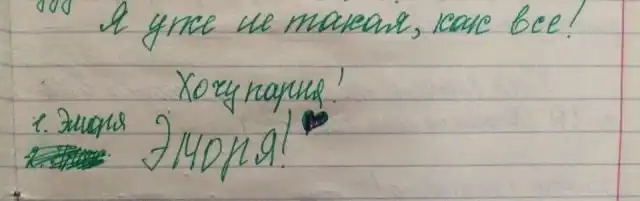 Я уже не такая, как все!
Хочу парня!
1. Эморя
Эморя!